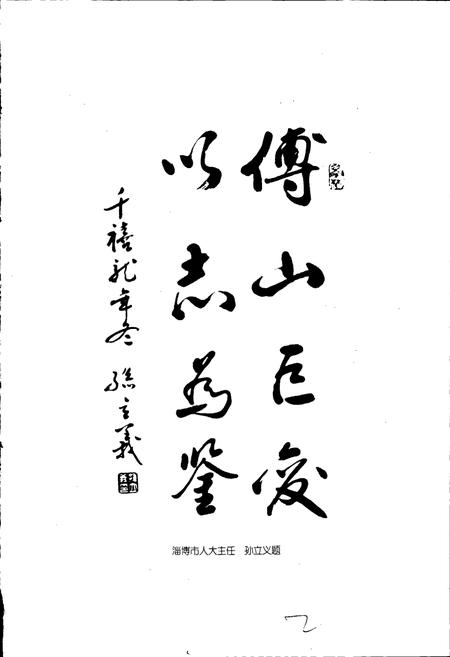 傅山巨变
以志为鉴
千禧龙年冬 孙立义
淄博市人大主任 孙立义题